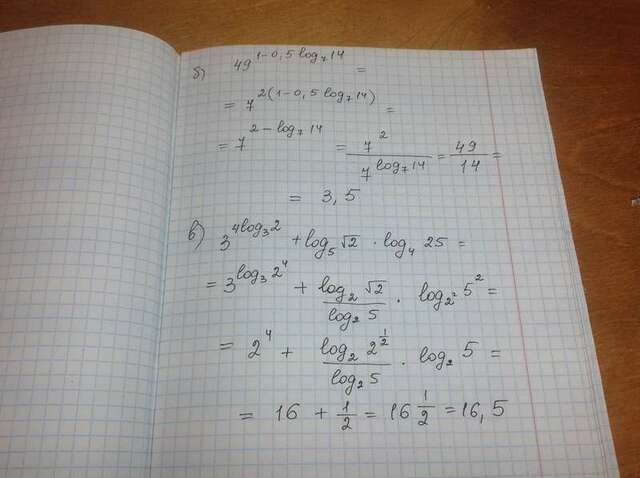 б) 49^{1-0,5 log_7 14} =
= 7^{2(1-0,5 log_7 14)} =
= 7^{2-log_7 14} = \frac{7^2}{7^{log_7 14}} = \frac{49}{14} =
= 3,5
в) 3^{4log_3 2} + log_5 √2 · log_4 25 =
= 3^{log_3 2^4} + \frac{log_2 √2}{log_2 5} · log_{2^2} 5^2 =
= 2^4 + \frac{log_2 2^{\frac{1}{2}}}{log_2 5} · log_2 5 =
= 16 + \frac{1}{2} = 16 \frac{1}{2} = 16,5